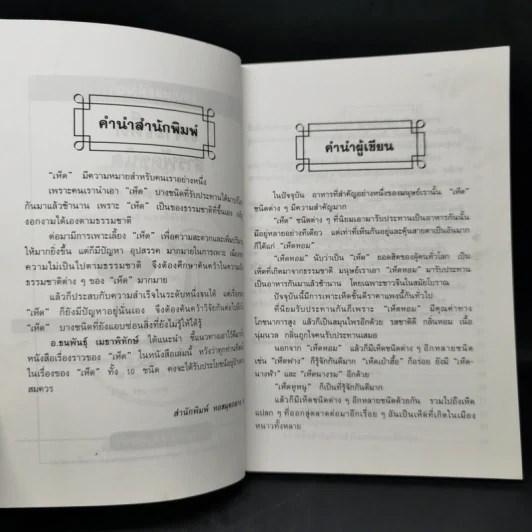 คำนำสำนักพิมพ์
"เห็ด" มีความหมายสำหรับคนเราอย่างหนึ่ง
เพราะคนเรานำเอา "เห็ด" บางชนิดที่รับประทานได้มาเป็น
กันมาแล้วช้านาน เพราะ "เห็ด" เป็นของธรรมชาติที่ขึ้นเอง
งอกงามได้เองตามธรรมชาติ
ต่อมามีการเพาะเลี้ยง "เห็ด" เพื่อความสะดวกและเพิ่มปริมาณ
ให้มากยิ่งขึ้น แต่ก็มีปัญหา อุปสรรค มากมายในการเพาะ เนื่องจาก
ความไม่เป็นไปตามธรรมชาติ จึงต้องศึกษาค้นคว้าในความเป็น
ธรรมชาติต่าง ๆ ของ "เห็ด" มากมาย
แล้วก็ประสบกับความสำเร็จในระดับหนึ่งจนได้ แต่เรื่องของ
"เห็ด" ก็ยังมีปัญหาอยู่นั่นเอง จึงต้องค้นคว้าวิจัยกันต่อไป
"เห็ด" บางชนิดที่ยังแอบซ่อนสิ่งที่ยังไม่รู้ให้ได้รู้
อ.ธนพันธุ์ เมธาพิทักษ์ ได้แนะนำ ชี้แนวทางเอาไว้
หนังสือเรื่องราวของ "เห็ด" ในหนังสือเล่มนี้ หวังว่าทุกท่าน
ในเรื่องของ "เห็ด" ทั้ง 10 ชนิด คงจะได้รับประโยชน์อยู่บ้าง
สมควร
สำนักพิมพ์ หอสมุดกลาง
คำนำผู้เขียน
ในปัจจุบัน อาหารที่สำคัญอย่างหนึ่งของมนุษย์เรานั้น "เห็ด"
ชนิดต่าง ๆ มีความสำคัญมาก
"เห็ด" ชนิดต่าง ๆ ที่นิยมเอามารับประทานเป็นอาหารกันนั้น
มีอยู่หลายอย่างทีเดียว แต่เท่าที่เห็นกันอยู่และคุ้นสายตาเป็นอันมาก
ก็ได้แก่ "เห็ดหอม"
"เห็ดหอม" นับว่าเป็น "เห็ด" ยอดฮิตของผู้คนทั่วโลก เป็น
เห็ดที่เกิดมาจากธรรมชาติ มนุษย์เราเอา "เห็ดหอม" มารับประทาน
เป็นอาหารกันมาแล้วช้านาน โดยเฉพาะชาวจีนในสมัยโบราณ
ปัจจุบันนี้มีการเพาะเห็ดขึ้นดีราคาแพงนี้กันทั่วไป
ที่นิยมรับประทานกันก็เพราะ "เห็ดหอม" มีคุณค่าทาง
โภชนาการสูง แล้วก็เป็นสมุนไพรอีกด้วย รสชาติดี กลิ่นหอม เนื้อ
นุ่มนวล กลิ่นถูกใจคนรับประทานเสมอ
นอกจาก "เห็ดหอม" แล้วก็มีเห็ดชนิดต่าง ๆ อีกหลายชนิด
เช่น "เห็ดฟาง" ก็รู้จักกันดีมาก "เห็ดเป๋าฮื้อ" ก็อร่อย ยังมี "เห็ด-
นางฟ้า" และ "เห็ดนางรม" อีกด้วย
"เห็ดหูหนู" ก็เป็นที่รู้จักกันดีมาก
แล้วก็มีเห็ดชนิดต่าง ๆ อีกหลายชนิดด้วยกัน รวมไปถึงเห็ด
แปลก ๆ ที่ออกสู่ตลาดต่อมาอีกเรื่อย ๆ อันเป็นเห็ดที่เกิดในเมือง
หนาวทั้งหลาย